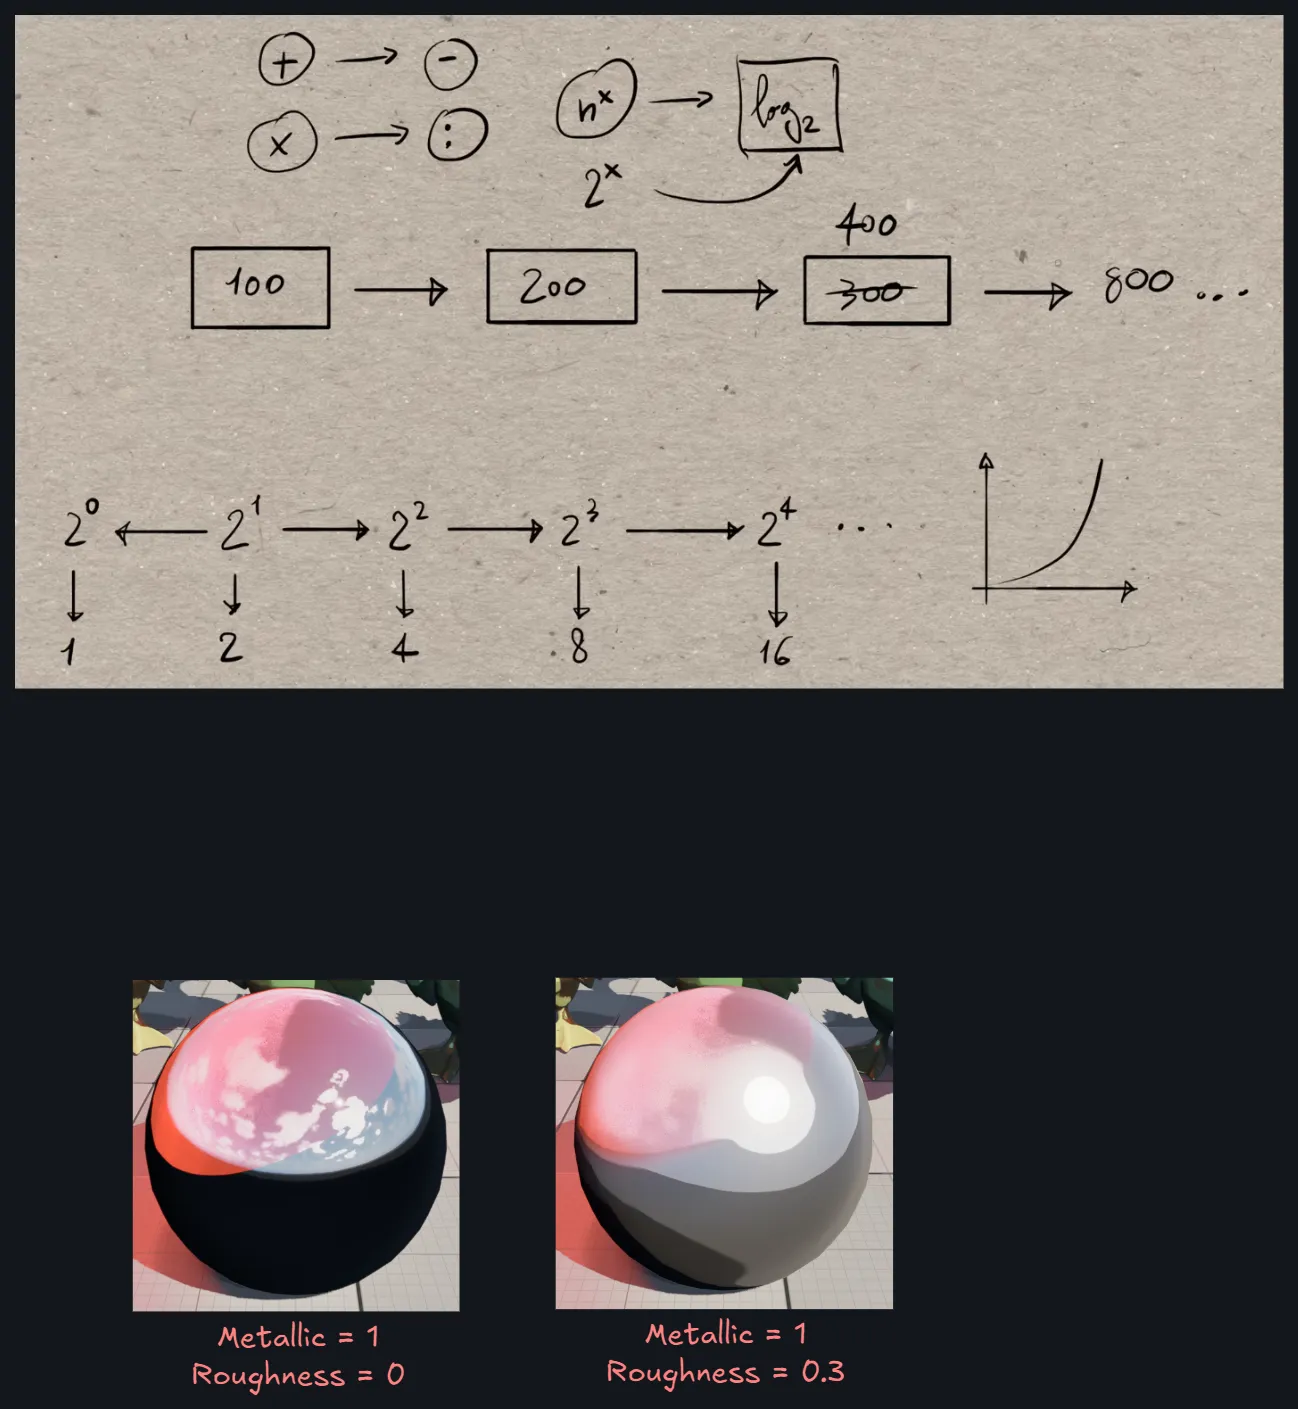 + → -
x → :
nˣ → log₂
2ˣ
400
100 → 200 → 300 → 800 ...
2⁰ ← 2¹ → 2² → 2³ → 2⁴ ...
1 2 4 8 16
Metallic = 1
Roughness = 0
Metallic = 1
Roughness = 0.3